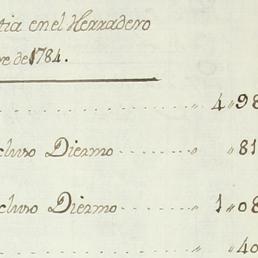 tia en el Herradero
re de 1784.
4 „ 98
cluso Diezmo „ „ 81
cluso Diezmo „ 1 „ 08
„ „ 40